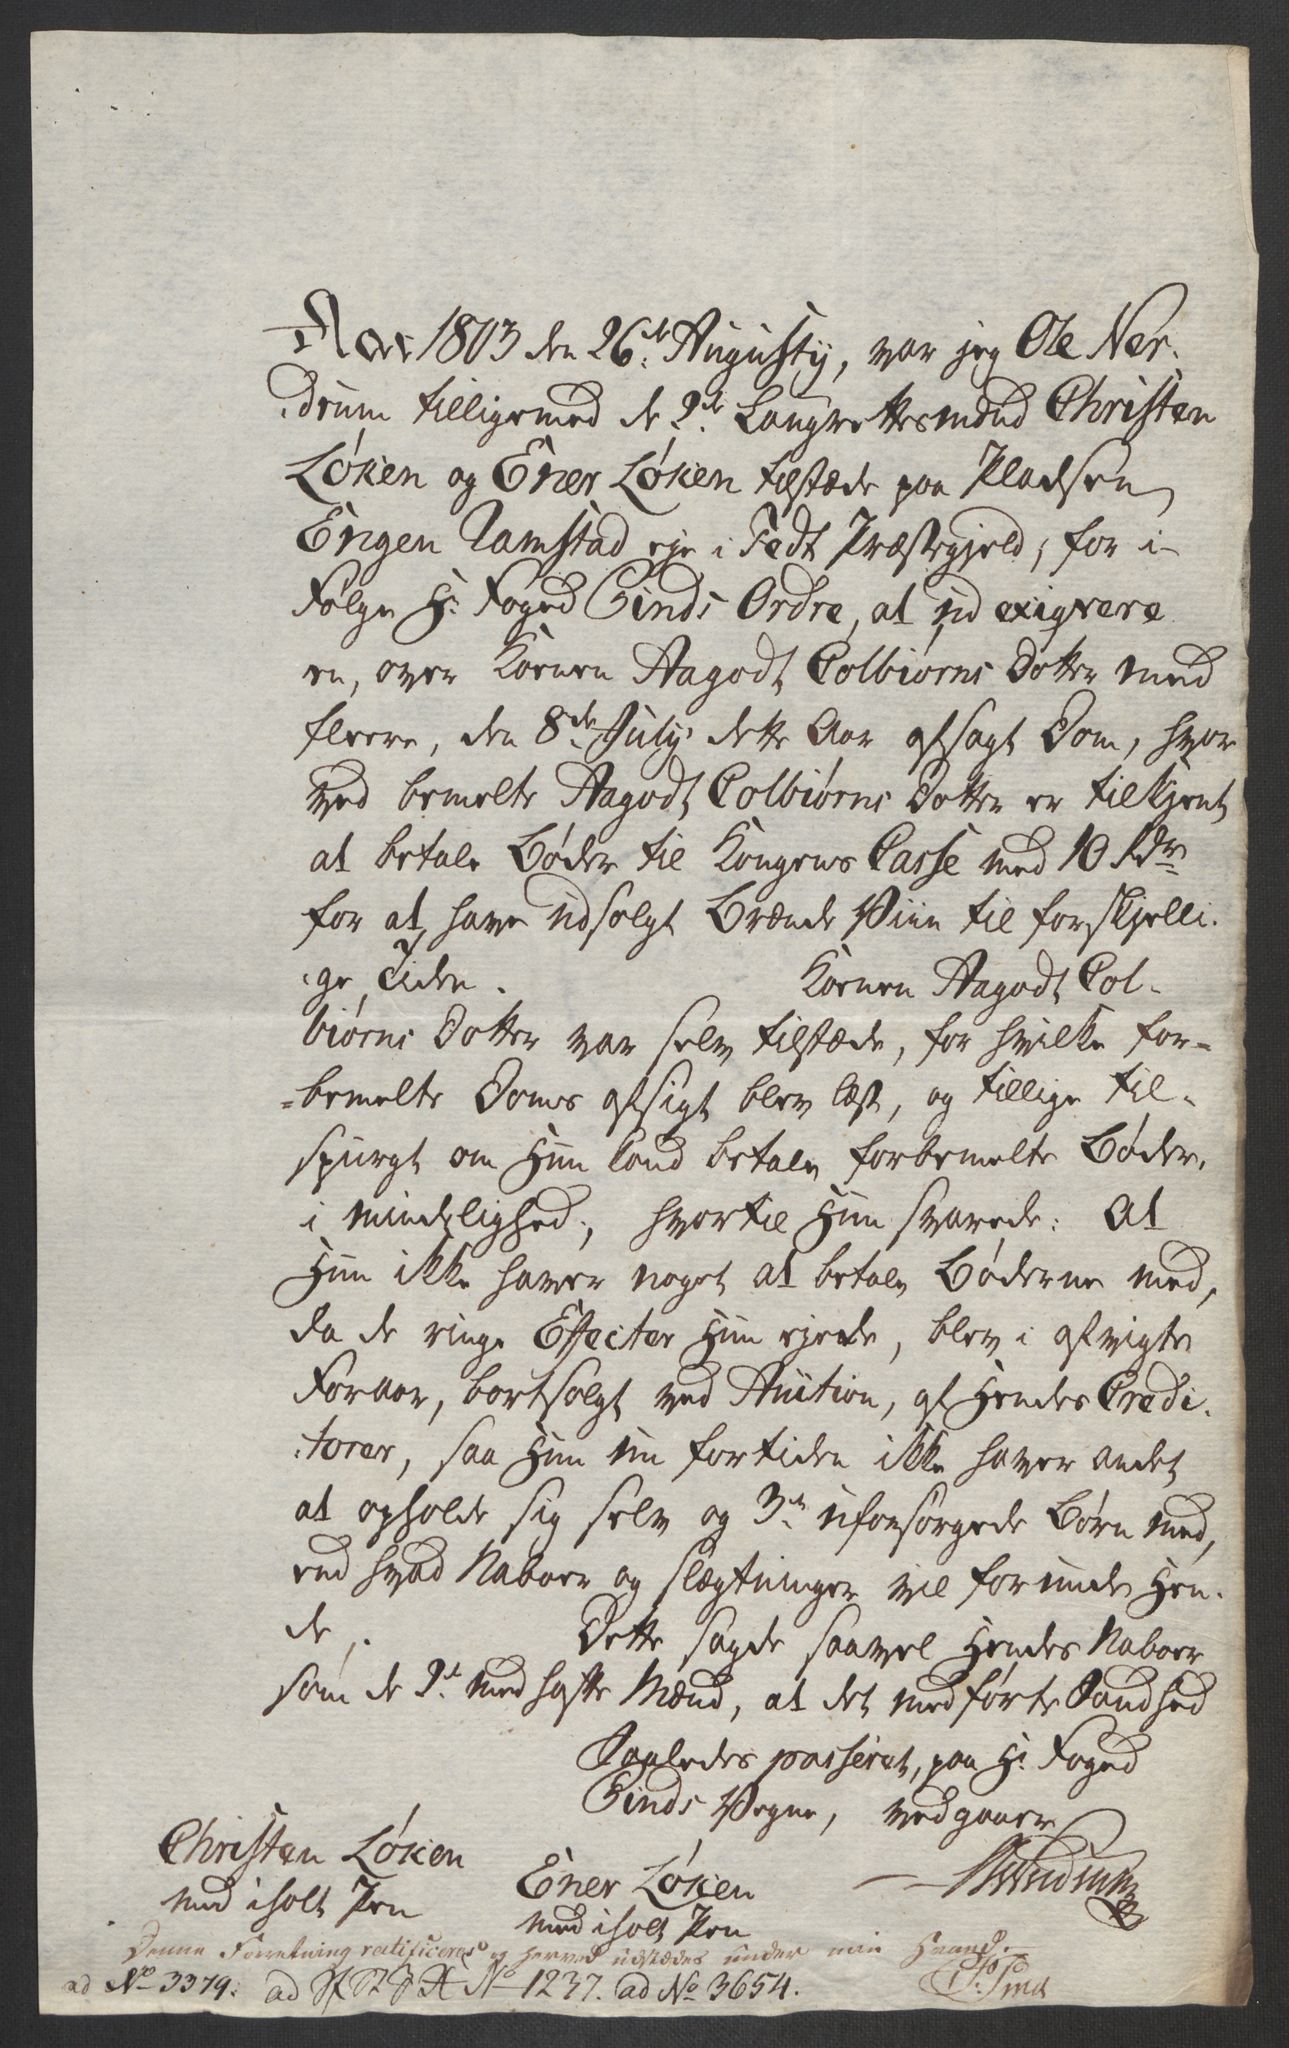 Aar 1803 den 26de Augusty, var jeg Ole Ner-
drum tilligemed de 2de Laugrettesmænd Christen
Løken og Ener Løken tilstæde paa Pladsen
Engen Ramstad eje i Fedt Præstegjeld, for i
Følge Hr Foged Sinds Ordre, at udexiqvere
en, over Konen Aagodt Colbiørns Dotter med
fleere, den 8de July dette Aar afsagt Dom, hvor
ved bemelte Aagodt Colbiørns Dotter er tilkjent
at betale Bøder til Kongens Casse med 10 Rdr
for at have udsolgt Brænde Viin til forskjelli-
ge Tider. Konen Aagodt Col-
biørns Dotter var selv tilstæde, for hvilke for-
bemelte Doms afsigt blev læst, og tillige til-
spurgt om Hun kand betale forbemelte Bøder,
i mindelighed, hvortil Hun svarede: At
Hun ikke haver noget at betale Bøderne med,
da de ringe Effecter Hun ejede, blev i afvigte
Foraar, bortsolgt ved Auction, af Hendes Credi-
torer, saa Hun nu fortiden ikke haver andet
at opholde sig selv og 3de uforsørgede Børn med,
end hvad Naboer og slægtninger vil forunde Hen-
de. Dette sagde saavel Hendes Naboer
som de 2de med hafte Mænd, at det medførte Sandhed
Saaledes passeret, paa Hr Foged
Sinds Vegne, vedgaaer
Christen Løken
med iholt Pen
Ener Løken
med iholt Pen
Nerdrum
Denne Forretning ratificeres og herved udstædes under min Haand.
Sind
ad No 3379. ad No 1237. ad No 3654.